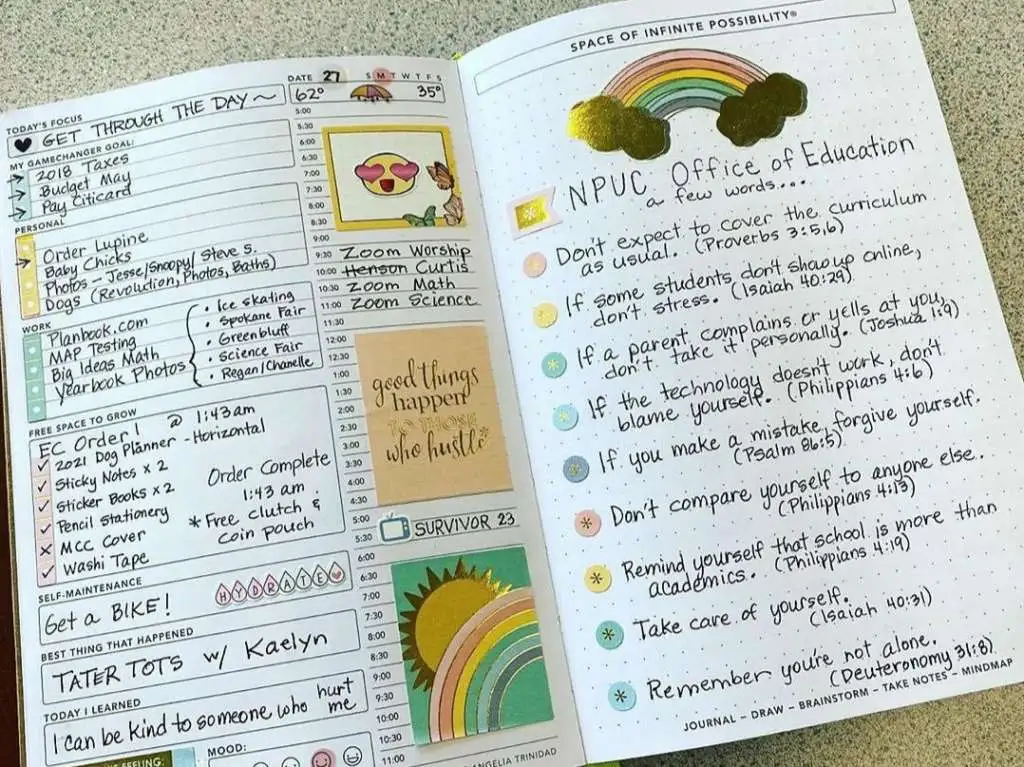 DATE 27 S M T W T F S
62° 35°
TODAY'S FOCUS
GET THROUGH THE DAY ~
MY GAMECHANGER GOAL:
2018 Taxes
Budget May
Pay Citicard
PERSONAL
Order Lupine
Baby Chicks
Photos - Jesse/Snoopy/Steve S.
Dogs (Revolution, Photos, Baths)
WORK
Planbook.com
MAP Testing
Big Ideas Math
Yearbook Photos
• Ice skating
• Spokane Fair
• Greenbluff
• Science Fair
• Regan/Chanelle
FREE SPACE TO GROW
EC Order! @ 1:43am
✓ 2021 Dog Planner - Horizontal
✓ Sticky Notes x 2
✓ Sticker Books x 2
✓ Pencil Stationery
x MCC Cover
✓ Washi Tape
Order Complete
1:43 am
* Free clutch &
coin pouch
SELF-MAINTENANCE
HYDRATE
Get a BIKE!
BEST THING THAT HAPPENED
TATER TOTS w/ Kaelyn
TODAY I LEARNED
I can be kind to someone who hurt
me
FEELING:
MOOD:
5:00
5:30
6:00
6:30
7:00
7:30
8:00
8:30
9:00
9:30 Zoom Worship
10:00 Henson Curtis
10:30 Zoom Math
11:00 Zoom Science
11:30
12:00
12:30
1:00
1:30
2:00
2:30
3:00
3:30
4:00
4:30
good things
happen
TO THOSE
who hustle*
5:00
5:30 SURVIVOR 23
6:00
6:30
7:00
7:30
8:00
8:30
9:00
9:30
10:00
10:30
11:00
ANGELIA TRINIDAD
SPACE OF INFINITE POSSIBILITY®
NPUC Office of Education
a few words....
Don't expect to cover the curriculum
as usual. (Proverbs 3:5,6)
If some students don't show up online,
don't stress. (Isaiah 40:29)
If a parent complains or yells at you,
don't take it personally. (Joshua 1:9)
If the technology doesn't work, don't
blame yourself. (Philippians 4:6)
If you make a mistake, forgive yourself.
(Psalm 86:5)
Don't compare yourself to anyone else.
(Philippians 4:13)
Remind yourself that school is more than
academics. (Philippians 4:19)
Take care of yourself.
(Isaiah 40:31)
Remember you're not alone.
(Deuteronomy 31:8)
JOURNAL – DRAW – BRAINSTORM – TAKE NOTES – MINDMAP